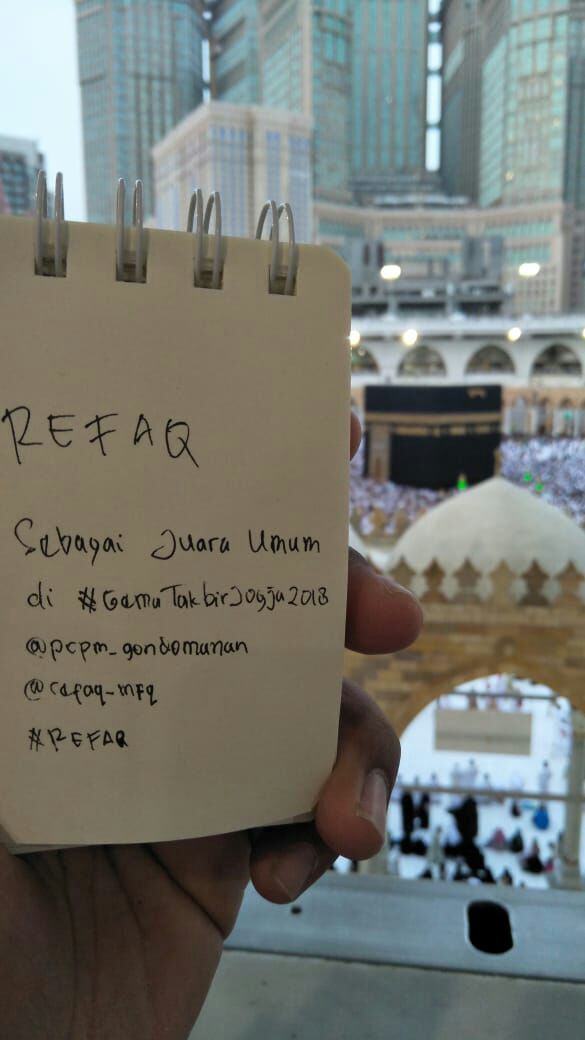 REFAQ
Sebagai Juara Umum
di #GemaTakbirJogja2018
@pcpm_gondomanan
@refaq_mfq
#REFAQ